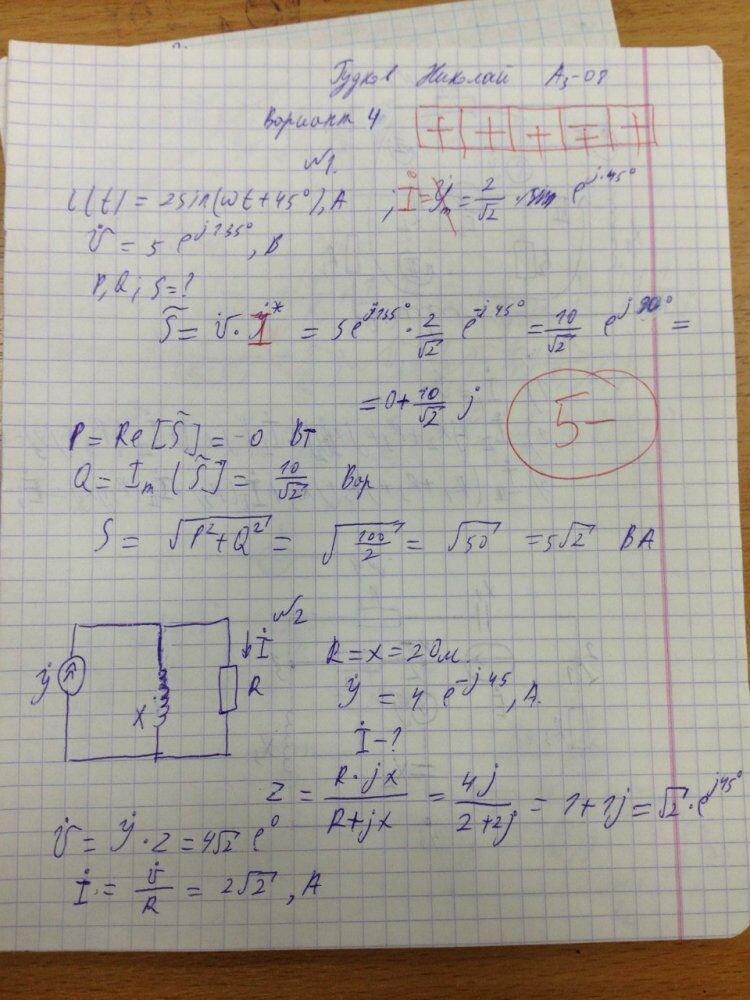 Гудков Николай А3-08
Вариант 4
+ + + ∓ +
№1.
i(t) = 2sin(ωt+45°), A ; İ = J̇m = 2/√2 e^{j·45°}
U̇ = 5 e^{j135°}, В
P, Q, S = ?
S̃ = U̇ · I* = 5e^{j135°} · 2/√2 e^{-j45°} = 10/√2 e^{j90°} =
= 0 + 10/√2 j
5-
P = Re[S̃] = 0 Вт
Q = Im(S̃) = 10/√2 Вар
S = √(P²+Q²) = √(100/2) = √50 = 5√2 ВА
№2
J̇ X İ R
R = X = 2 Ом.
J̇ = 4 e^{-j45}, A.
İ - ?
Z = R·jX/(R+jX) = 4j/(2+2j) = 1+1j = √2 · e^{j45°}
U̇ = J̇ · Z = 4√2 e^{0}
İ = U̇/R = 2√2, A